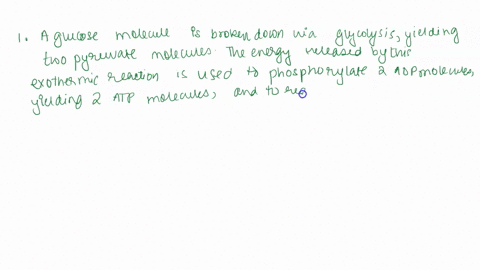 1. A glucose molecule is broken down via glycolysis, yielding
two pyruvate molecules. The energy released by this
exothermic reaction is used to phosphorylate 2 ADP molecules,
yielding 2 ATP molecules, and to re